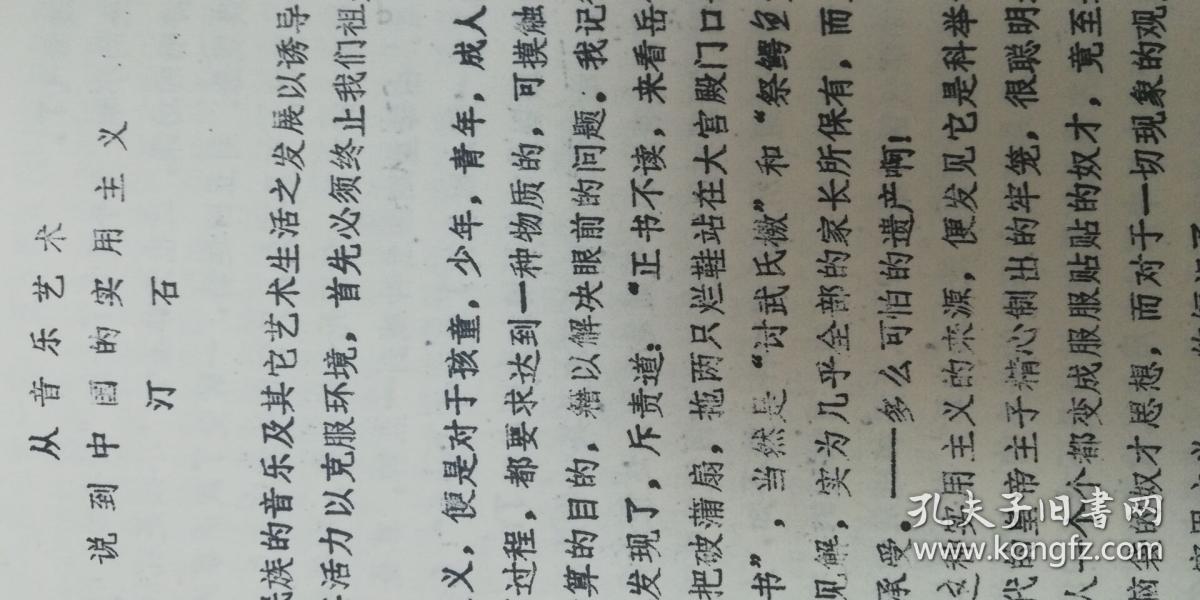 从音乐艺术
说到中国的实用主义
汀石
民族的音乐及其它艺术生活之发展以诱导
活力以克服环境，首先必须终止我们祖
义，便是对于孩童，少年，青年，成人
过程，都要求达到一种物质的，可摸触
算的目的，藉以解决眼前的问题。我记
发现了，斥责道：“正书不读，来看岳
把破蒲扇，拖两只烂鞋站在大宫殿门口
书”，当然是“讨武氏檄”和“祭鳄鱼
见解，实为几乎全部的家长所保有，而
承受。——多么可怕的遗产啊！
这种实用主义的来源，便发见它是科举
代的皇帝主子精心制出的牢笼，很聪明
人一个个都变成服服贴贴的奴才，竟至
脑袋的奴才思想，而对于一切现象的观
孔夫子旧书网
www.kongfz.com